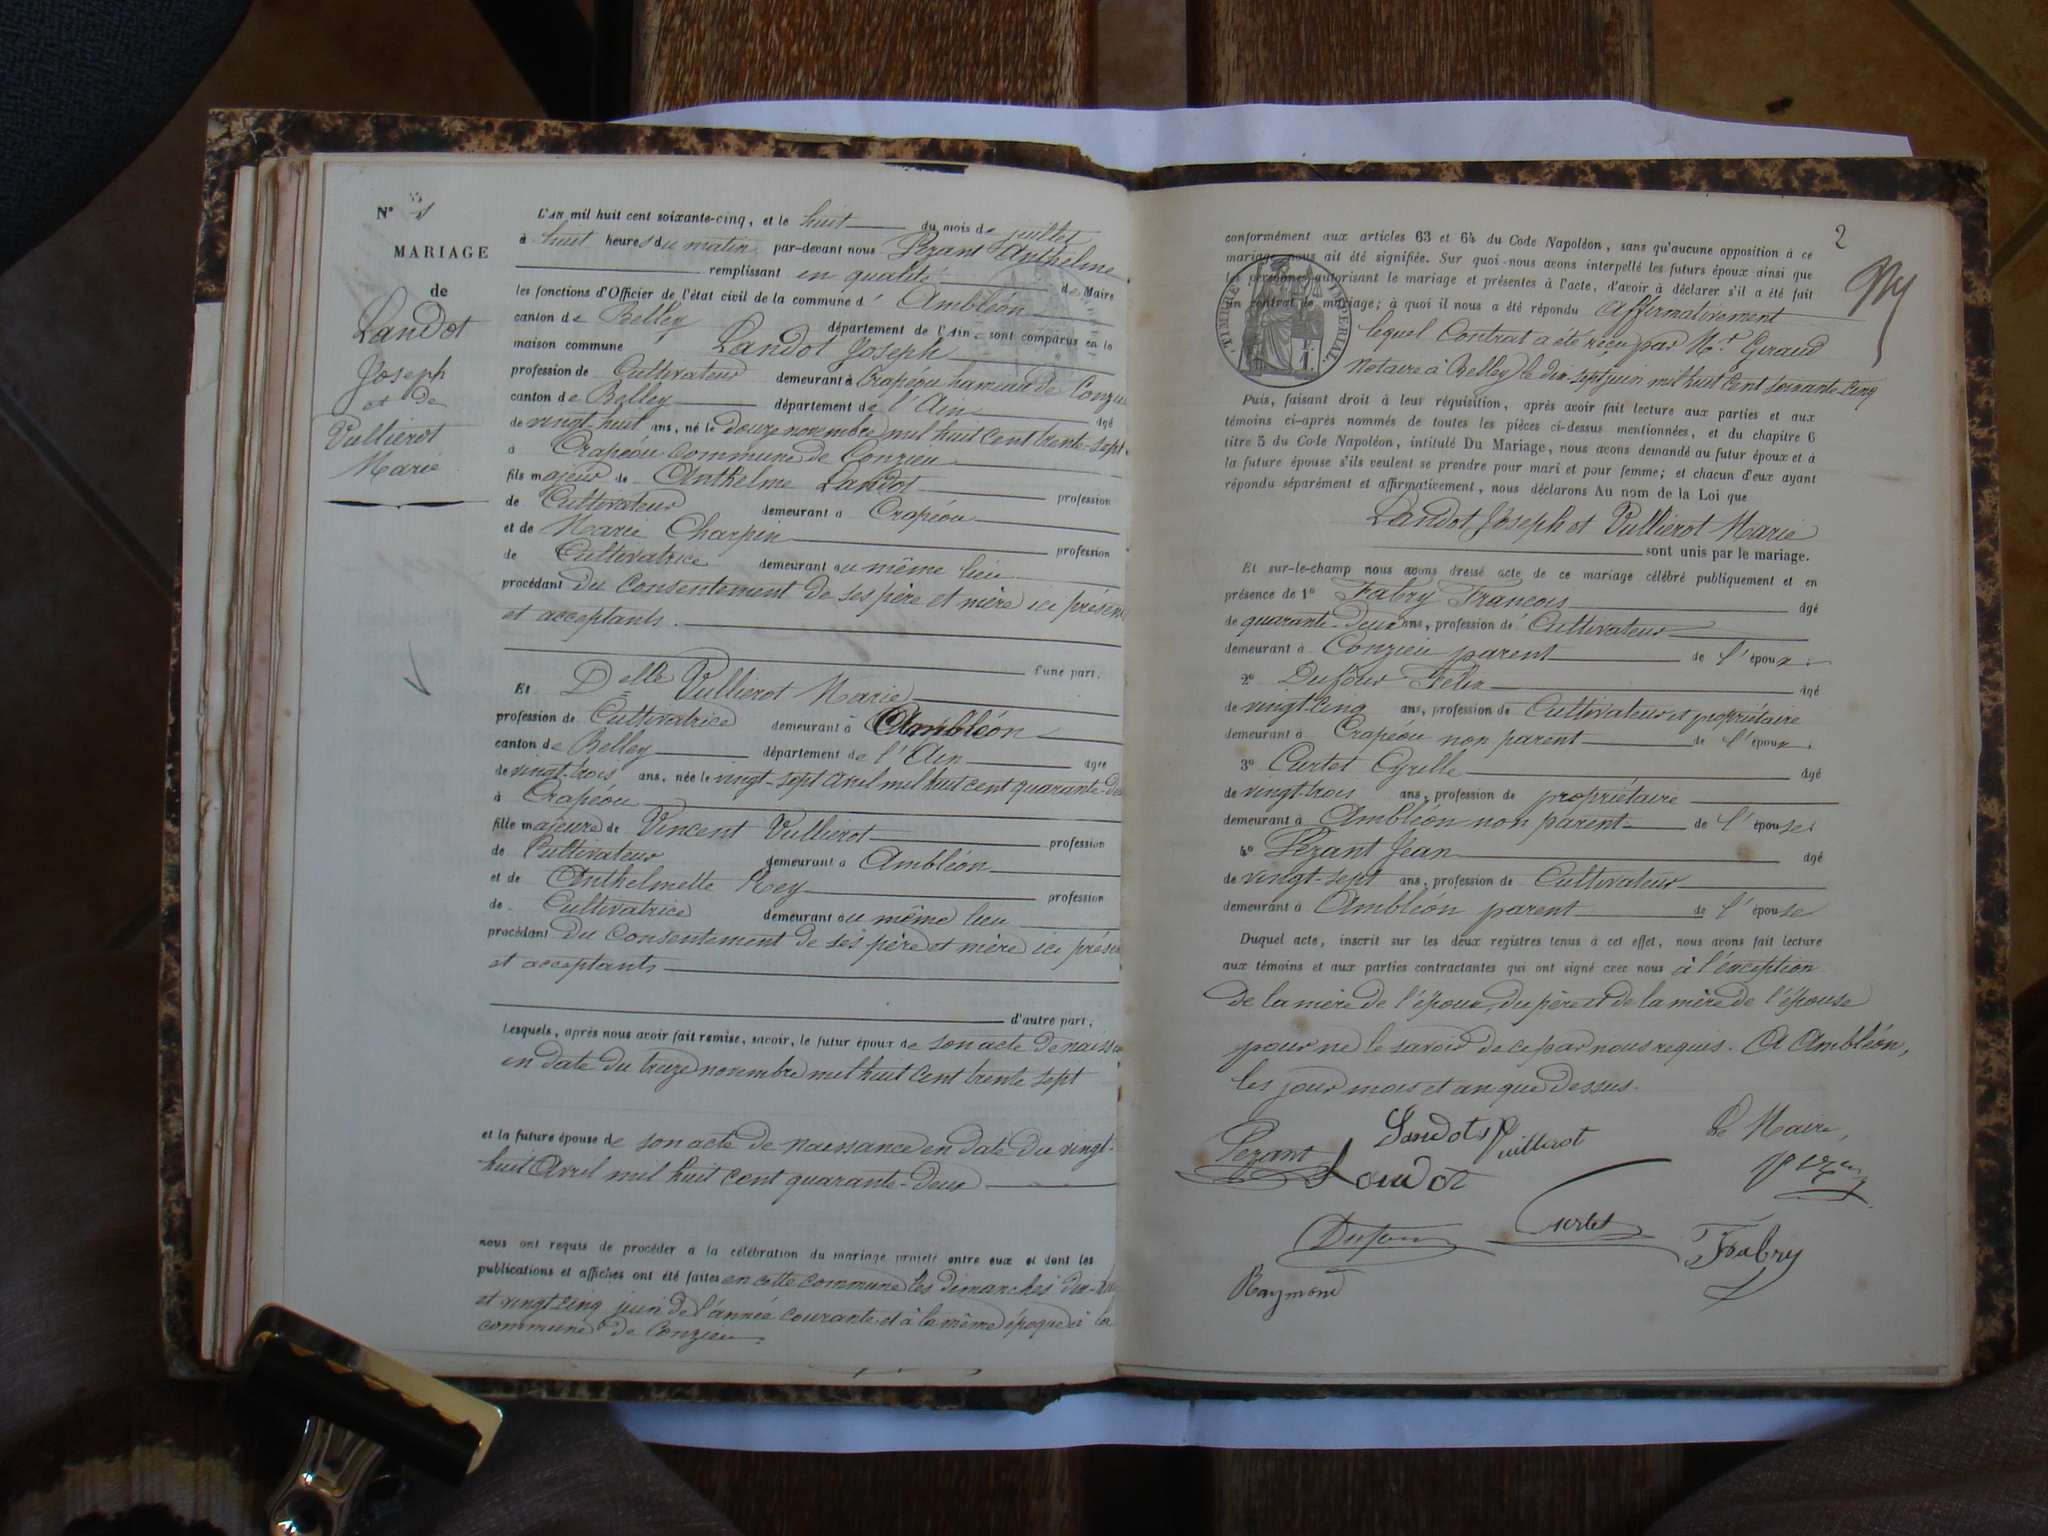 N° 1
MARIAGE
de
Landot
Joseph
et de
Vullierot
Marie
L'an mil huit cent soixante-cinq, et le huit du mois de juillet
à huit heures du matin par-devant nous Pezant Anthelme
remplissant en qualité de Maire
les fonctions d'Officier de l'état civil de la commune d' Ambléon
canton de Belley département de l'Ain sont comparus en la
maison commune Landot Joseph
profession de Cultivateur demeurant à Crapéou hameau de Conzieu
canton de Belley département de l'Ain âgé
de vingt-huit ans, né le douze novembre mil huit cent trente-sept
à Crapéou Commune de Conzieu
fils majeur de Anthelme Landot profession
de Cultivateur demeurant à Crapéou
et de Marie Charpin profession
de Cultivatrice demeurant au même lieu
procédant du consentement de ses père et mère ici présen
et acceptants.
d'une part.
Et Delle Vullierot Marie
profession de Cultivatrice demeurant à Ambléon
canton de Belley département de l'Ain âgée
de vingt-trois ans, née le vingt-sept avril mil huit cent quarante-de
à Crapéou
fille majeure de Vincent Vullierot profession
de Cultivateur demeurant à Ambléon
et de Anthelmette Rey profession
de Cultivatrice demeurant au même lieu
procédant du consentement de ses père et mère ici prése
et acceptants
d'autre part;
Lesquels, après nous avoir fait remise, savoir, le futur époux de son acte de naiss
en date du treize novembre mil huit cent trente sept
et la future épouse de son acte de naissance en date du vingt-
huit Avril mil huit cent quarante-deux
nous ont requis de procéder à la célébration du mariage projeté entre eux et dont les
publications et affiches ont été faites en cette commune les dimanches dix-
et vingt cinq juin de l'année courante et à la même époque à la
commune de Conzieu
2
conformément aux articles 63 et 64 du Code Napoléon, sans qu'aucune opposition à ce
mariage nous ait été signifiée. Sur quoi nous avons interpellé les futurs époux ainsi que
les personnes autorisant le mariage et présentes à l'acte, d'avoir à déclarer s'il a été fait
un contrat de mariage; à quoi il nous a été répondu affirmativement
TIMBRE IMPERIAL
lequel Contrat a été reçu par Mt Geraud
Notaire à Belley le dix-sept juin mil huit cent soixante-cinq
Puis, faisant droit à leur réquisition, après avoir fait lecture aux parties et aux
témoins ci-après nommés de toutes les pièces ci-dessus mentionnées, et du chapitre 6
titre 5 du Code Napoléon, intitulé Du Mariage, nous avons demandé au futur époux et à
la future épouse s'ils veulent se prendre pour mari et pour femme; et chacun d'eux ayant
répondu séparément et affirmativement, nous déclarons Au nom de la Loi que
Landot Joseph et Vullierot Marie
sont unis par le mariage.
Et sur-le-champ nous avons dressé acte de ce mariage célébré publiquement et en
présence de 1° Fabry François âgé
de quarante-deux ans, profession de Cultivateur
demeurant à Conzieu parent de l'époux.
2° Dufour Félix âgé
de vingt-cinq ans, profession de Cultivateur et propriétaire
demeurant à Crapéou non parent de l'époux.
3° Curtet Cyrille âgé
de vingt-trois ans, profession de propriétaire
demeurant à Ambléon non parent de l'épouse.
4° Pezant Jean âgé
de vingt-sept ans, profession de Cultivateur
demeurant à Ambléon parent de l'épouse
Duquel acte, inscrit sur les deux registres tenus à cet effet, nous avons fait lecture
aux témoins et aux parties contractantes qui ont signé avec nous à l'exception
de la mère de l'époux, du père et de la mère de l'épouse
pour ne le savoir de ce par nous requis. A Ambléon,
les jour mois et an que dessus.
Landot Vuillerot Le Maire,
Pezant Landot
Dufour Curtet Fabry
Raymond